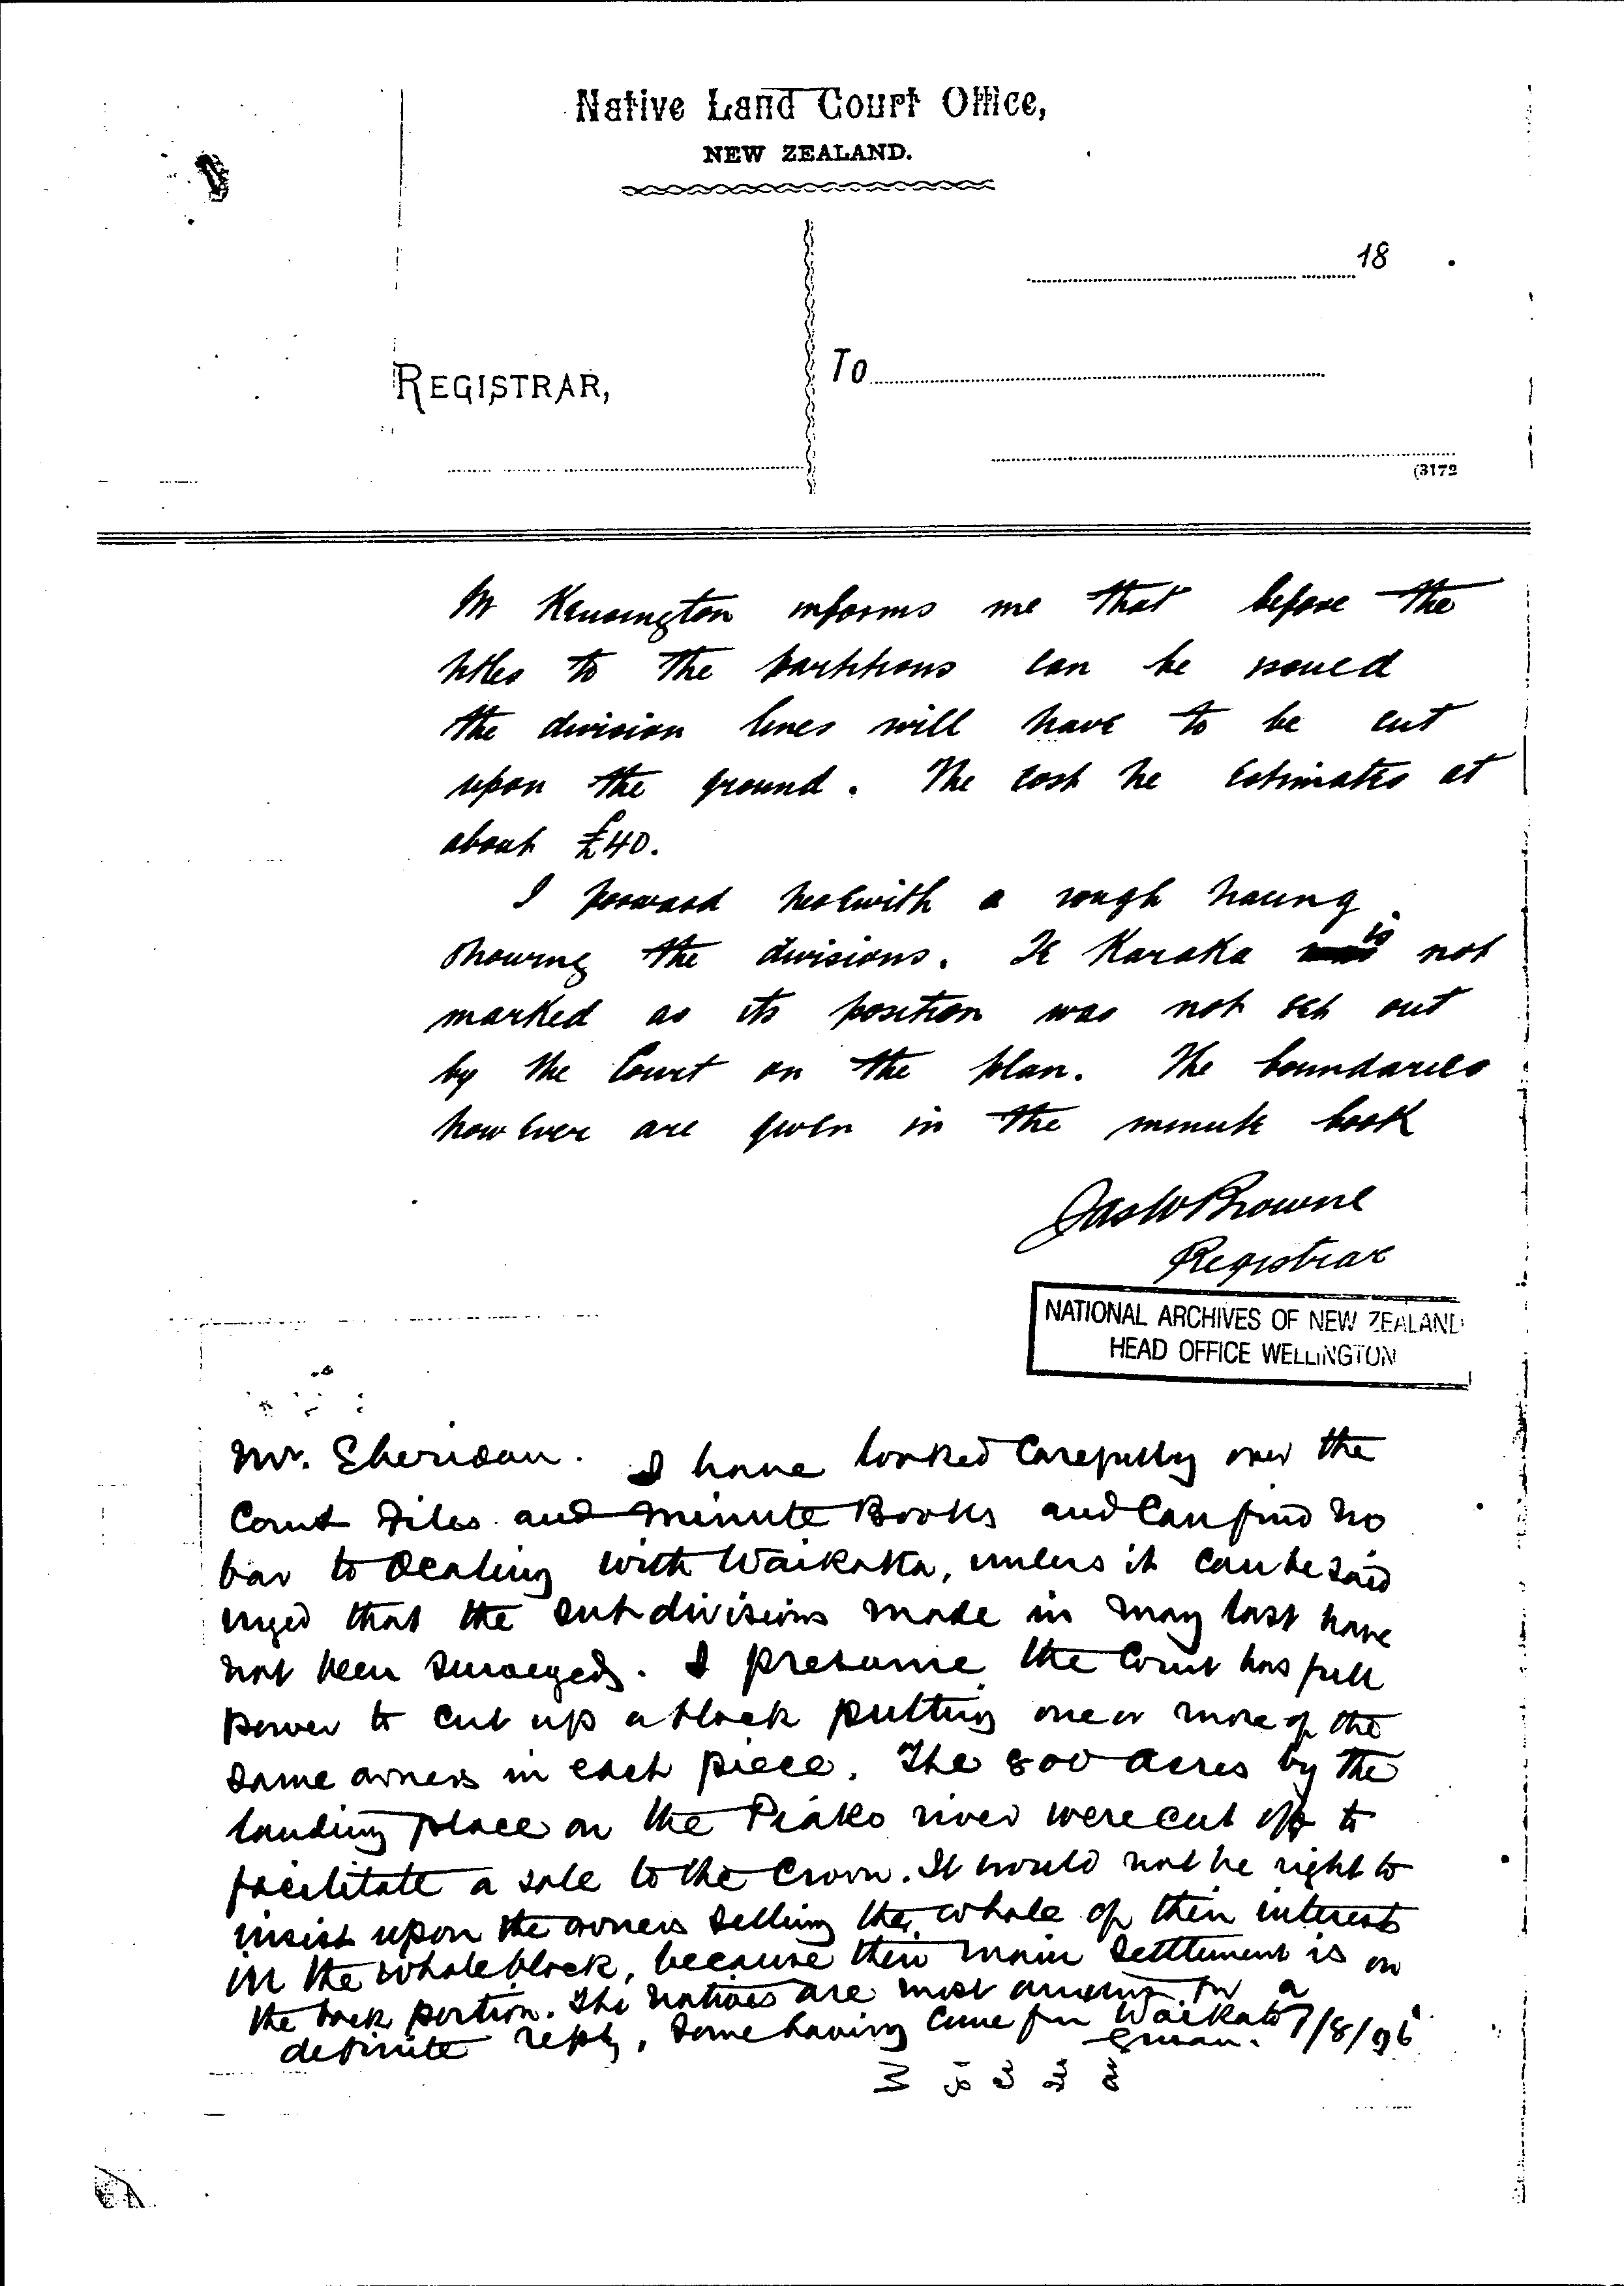 Native Land Court Office,
NEW ZEALAND.
18
REGISTRAR,
To
(3172
Mr Kensington informs me that before the
titles to the partitions can be issued
the division lines will have to be cut
upon the ground. The cost he estimates at
about £40.
I forward herewith a rough tracing
showing the divisions. Te Karaka is not
marked as its position was not set out
by the Court on the plan. The boundaries
however are given in the minute book
Jas W Browne
Registrar
NATIONAL ARCHIVES OF NEW ZEALAND
HEAD OFFICE WELLINGTON
Mr. Sheridan. I have looked carefully over the
Court Files and Minute Books and can find no
bar to dealing with Waikaka, unless it can be said
urged that the subdivisions made in May last have
not been surveyed. I presume the Court has full
power to cut up a block putting one or more of the
same owners in each piece. The 800 acres by the
landing place on the Piako river were cut off to
facilitate a sale to the Crown. It would not be right to
insist upon the owners selling the whole of their interest
in the whole block, because their main settlement is on
the back portion. The natives are most anxious for a
definite reply, some having come fm Waikato
7/8/96